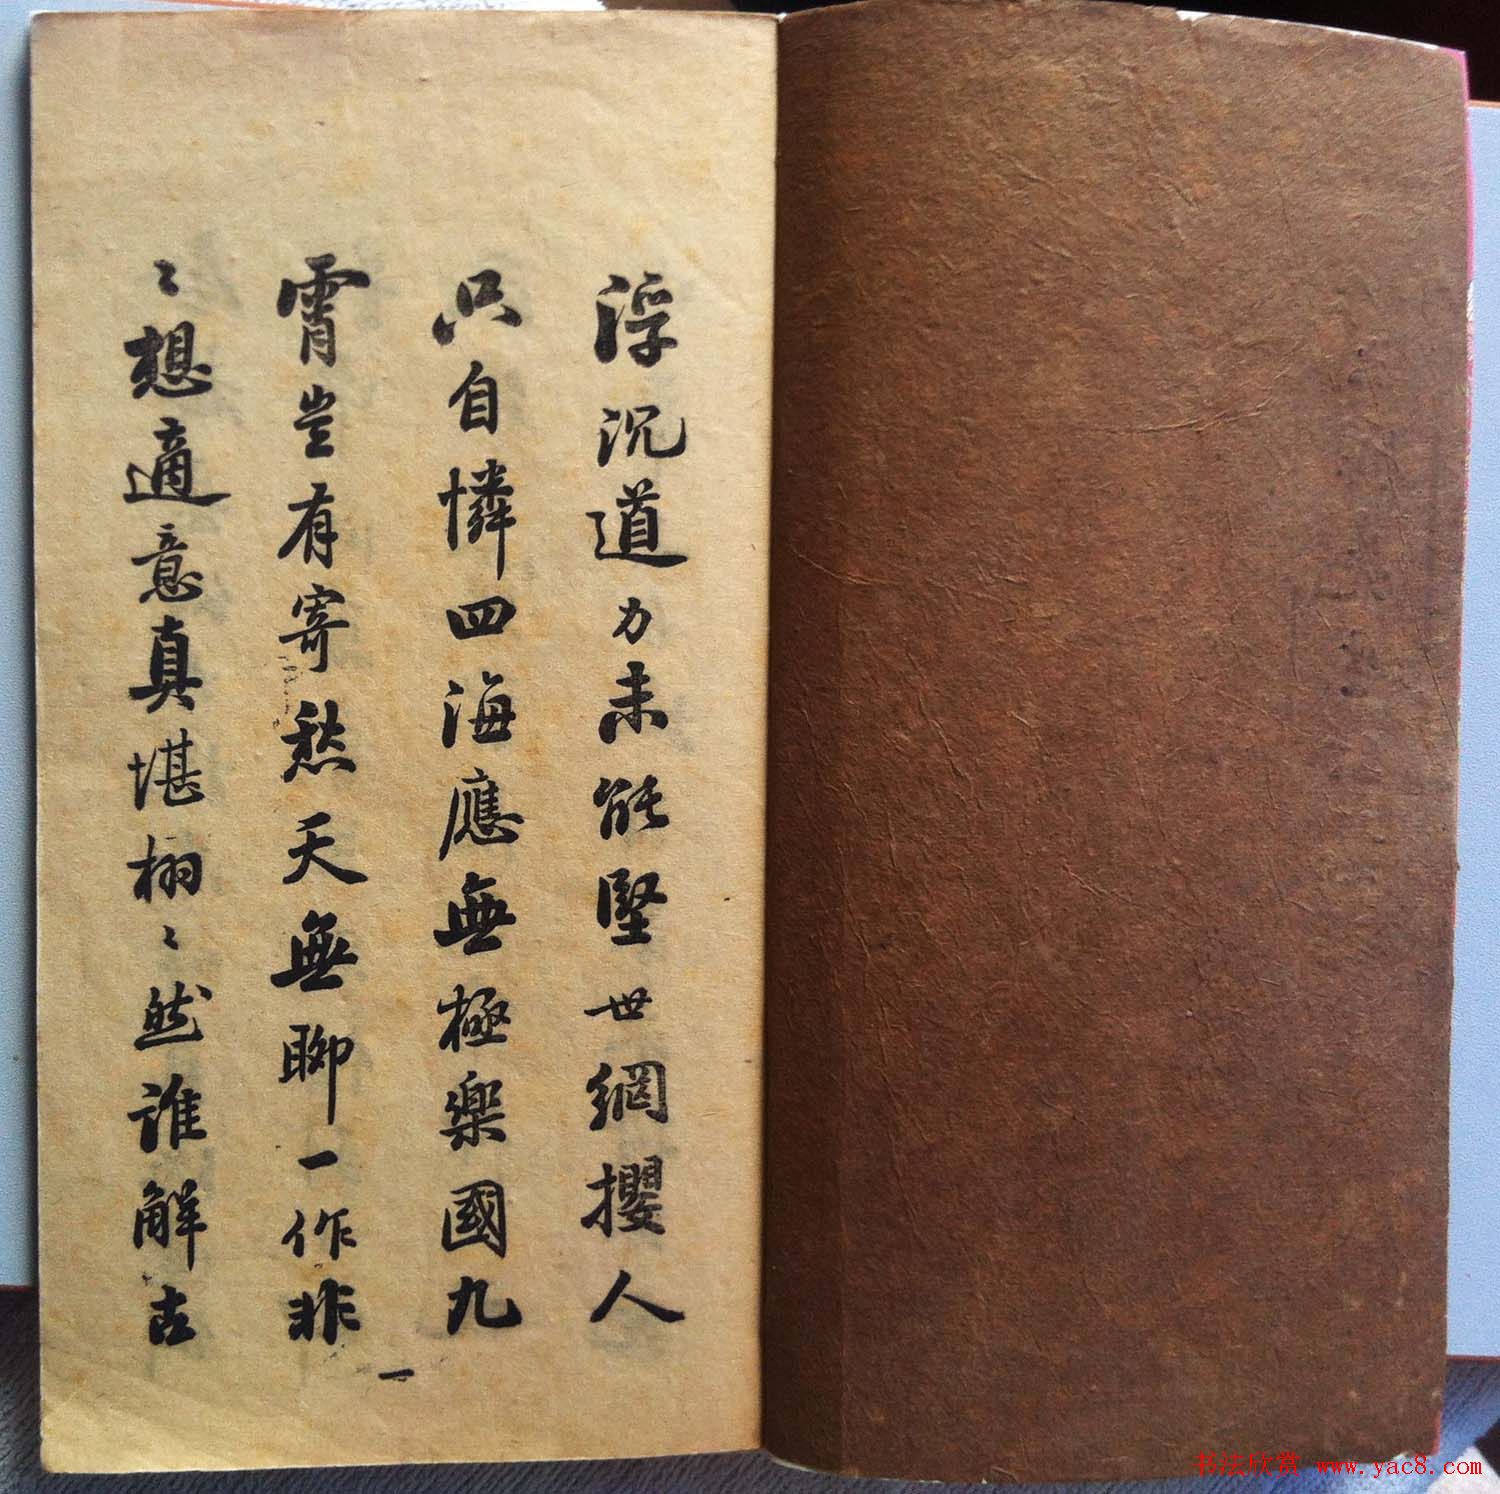 浮沉道力未能堅世網攖人
只自憐四海應無極樂國九
霄豈有寄愁天無聊一作非
〻想適意真堪栩〻然誰解古
一
书法欣赏 www.yac8.com